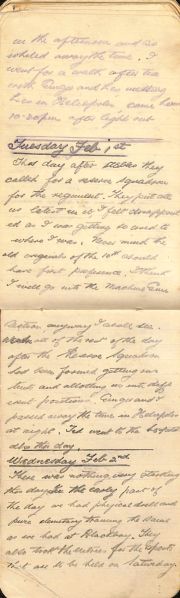 in the afternoon and so
whiled away the time. I
went for a walk after tea
with Pings and his
in Heliopolis came home
10-30 pm after light out
Tuesday Feb 1st
This day after stables they
called for a reserve Squadron
for the regiment. They put all
us latest in it I felt disappoint
ed as I was getting so used to
where I was. Never much the
old originals of the 10th should
have first preference. I think
I will go into the Machine Gun
Section anyway I shall see.
all of the rest of the day
after the Reserve Squadron
had been formed getting our
tents and allotting us out diff
erent positions. Pings and I
passed away the time in Heliopolis
at night. Ted went to the hospital
also this day.
Wednesday Feb 2nd
There was nothing very striking
this day in the early part of
the day we had physical drill and
pure elementary training the same
as we had at Blackboy. They
also took the entries for the sports
that are to be held on Saturday.